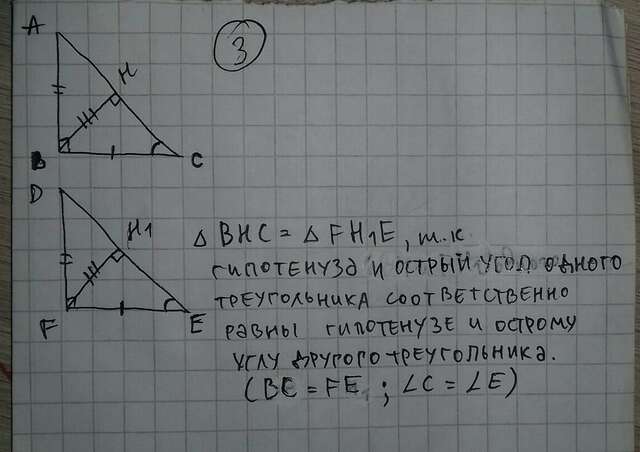 A
3
H
B
C
D
H1
F
E
△ BHC = △ FH₁E, т.к
гипотенуза и острый угол одного
треугольника соответственно
равны гипотенузе и острому
углу другого треугольника.
(BC = FE ; ∠C = ∠E)